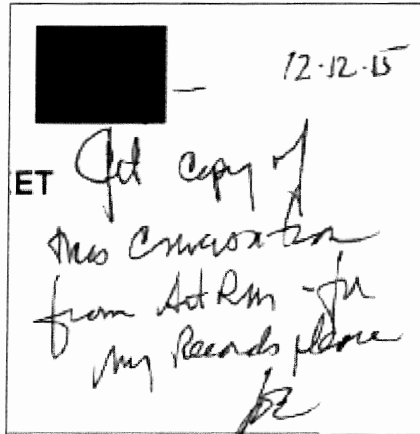 — 12-12-15
ET Get copy of
this conversation
from Art Rm - for
my Records please